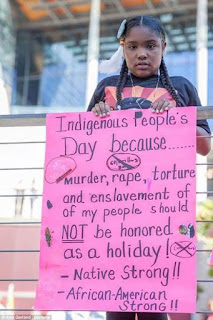 Indigenous People's
Day because......
Murder, rape, torture
and enslavement of
of my people should
NOT be honored
as a holiday!
- Native Strong!!
- African-American
Strong!!